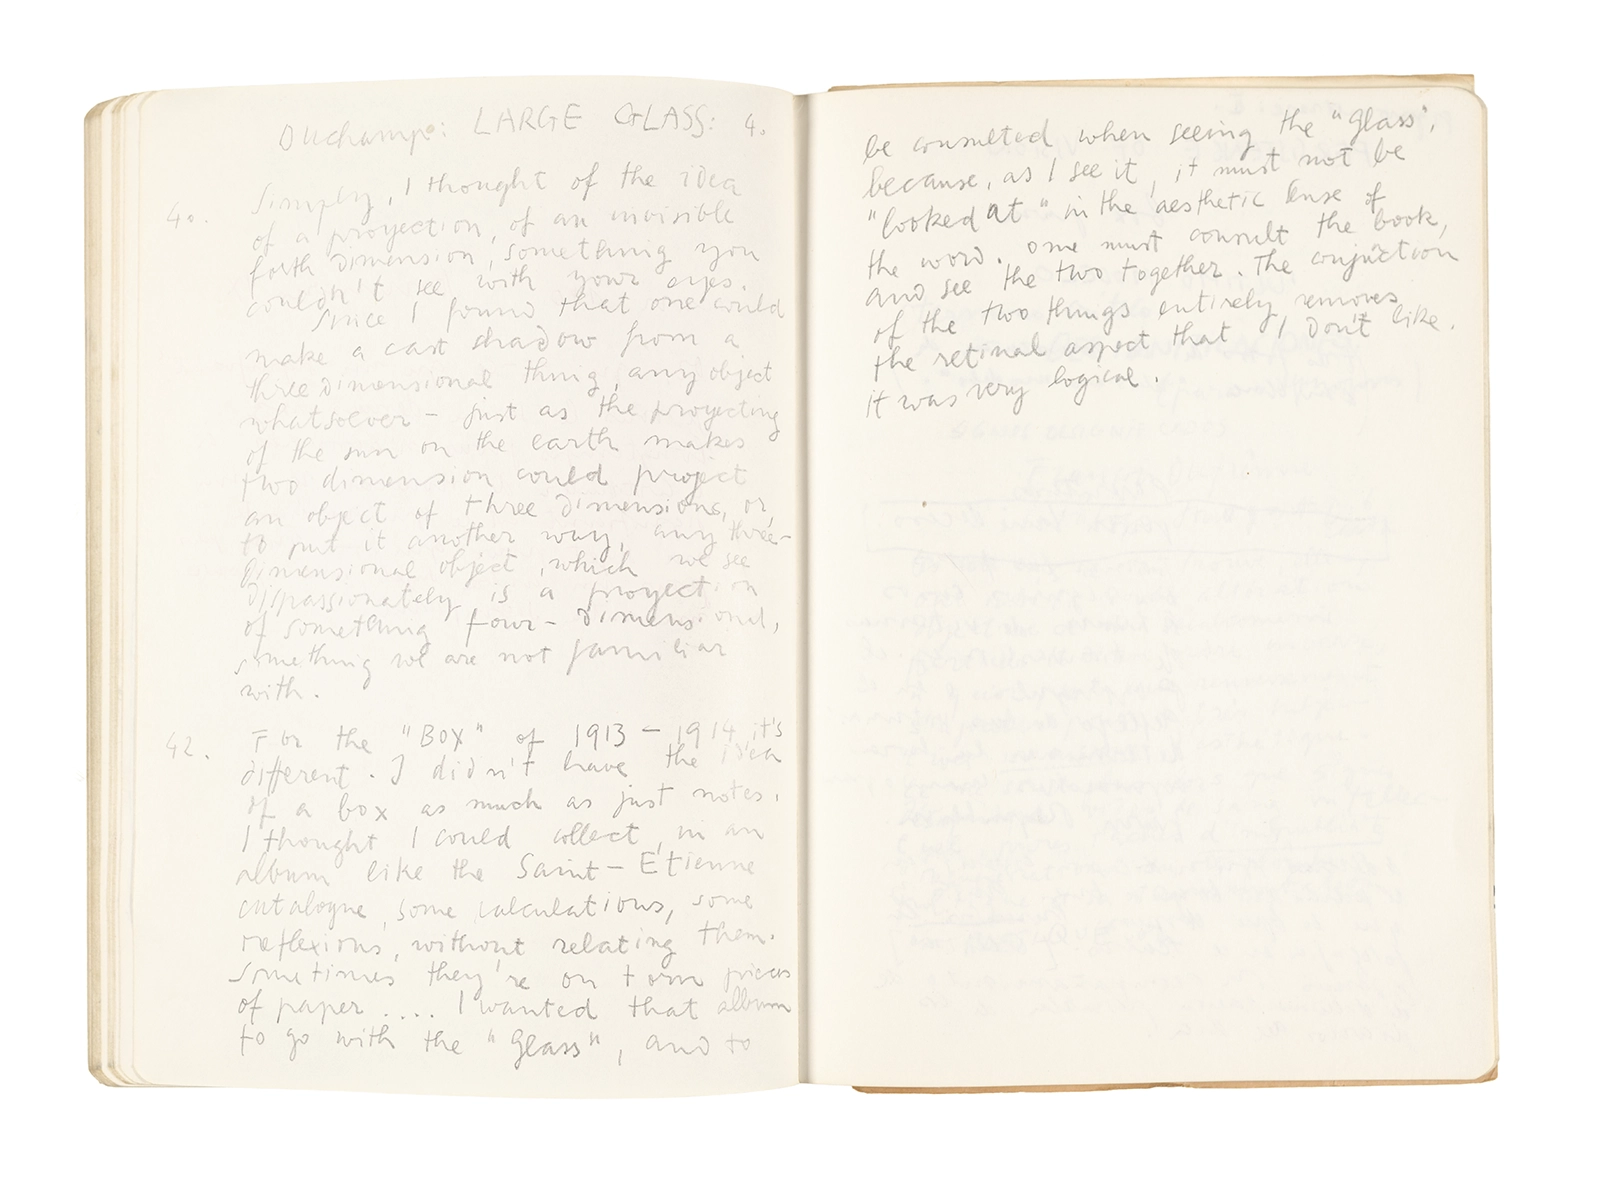 Duchamp: LARGE GLASS: 4.
40. Simply, I thought of the idea
of a proyection, of an invisible
forth dimension, something you
couldn't see with your eyes.
Since I found that one could
make a cast shadow from a
three dimensional thing, any object
whatsoever - just as the proyecting
of the sun on the earth makes
two dimension could project
an object of three dimensions, or,
to put it another way, any three-
dimensional object, which we see
dispassionately is a proyection
of something four-dimensional,
something we are not familiar
with.
42. For the "BOX" of 1913 - 1914, it's
different. I didn't have the idea
of a box as much as just notes.
I thought I could collect, in an
album like the Saint-Etienne
catalogue, some calculations, some
reflexions, without relating them.
Sometimes they're on torn pieces
of paper .... I wanted that album
to go with the "Glass", and to
be consulted when seeing the "Glass",
because, as I see it, it must not be
"looked at" in the aesthetic sense of
the word. One must consult the book,
and see the two together. The conjuction
of the two things entirely removes
the retinal aspect that I don't like.
it was very logical.